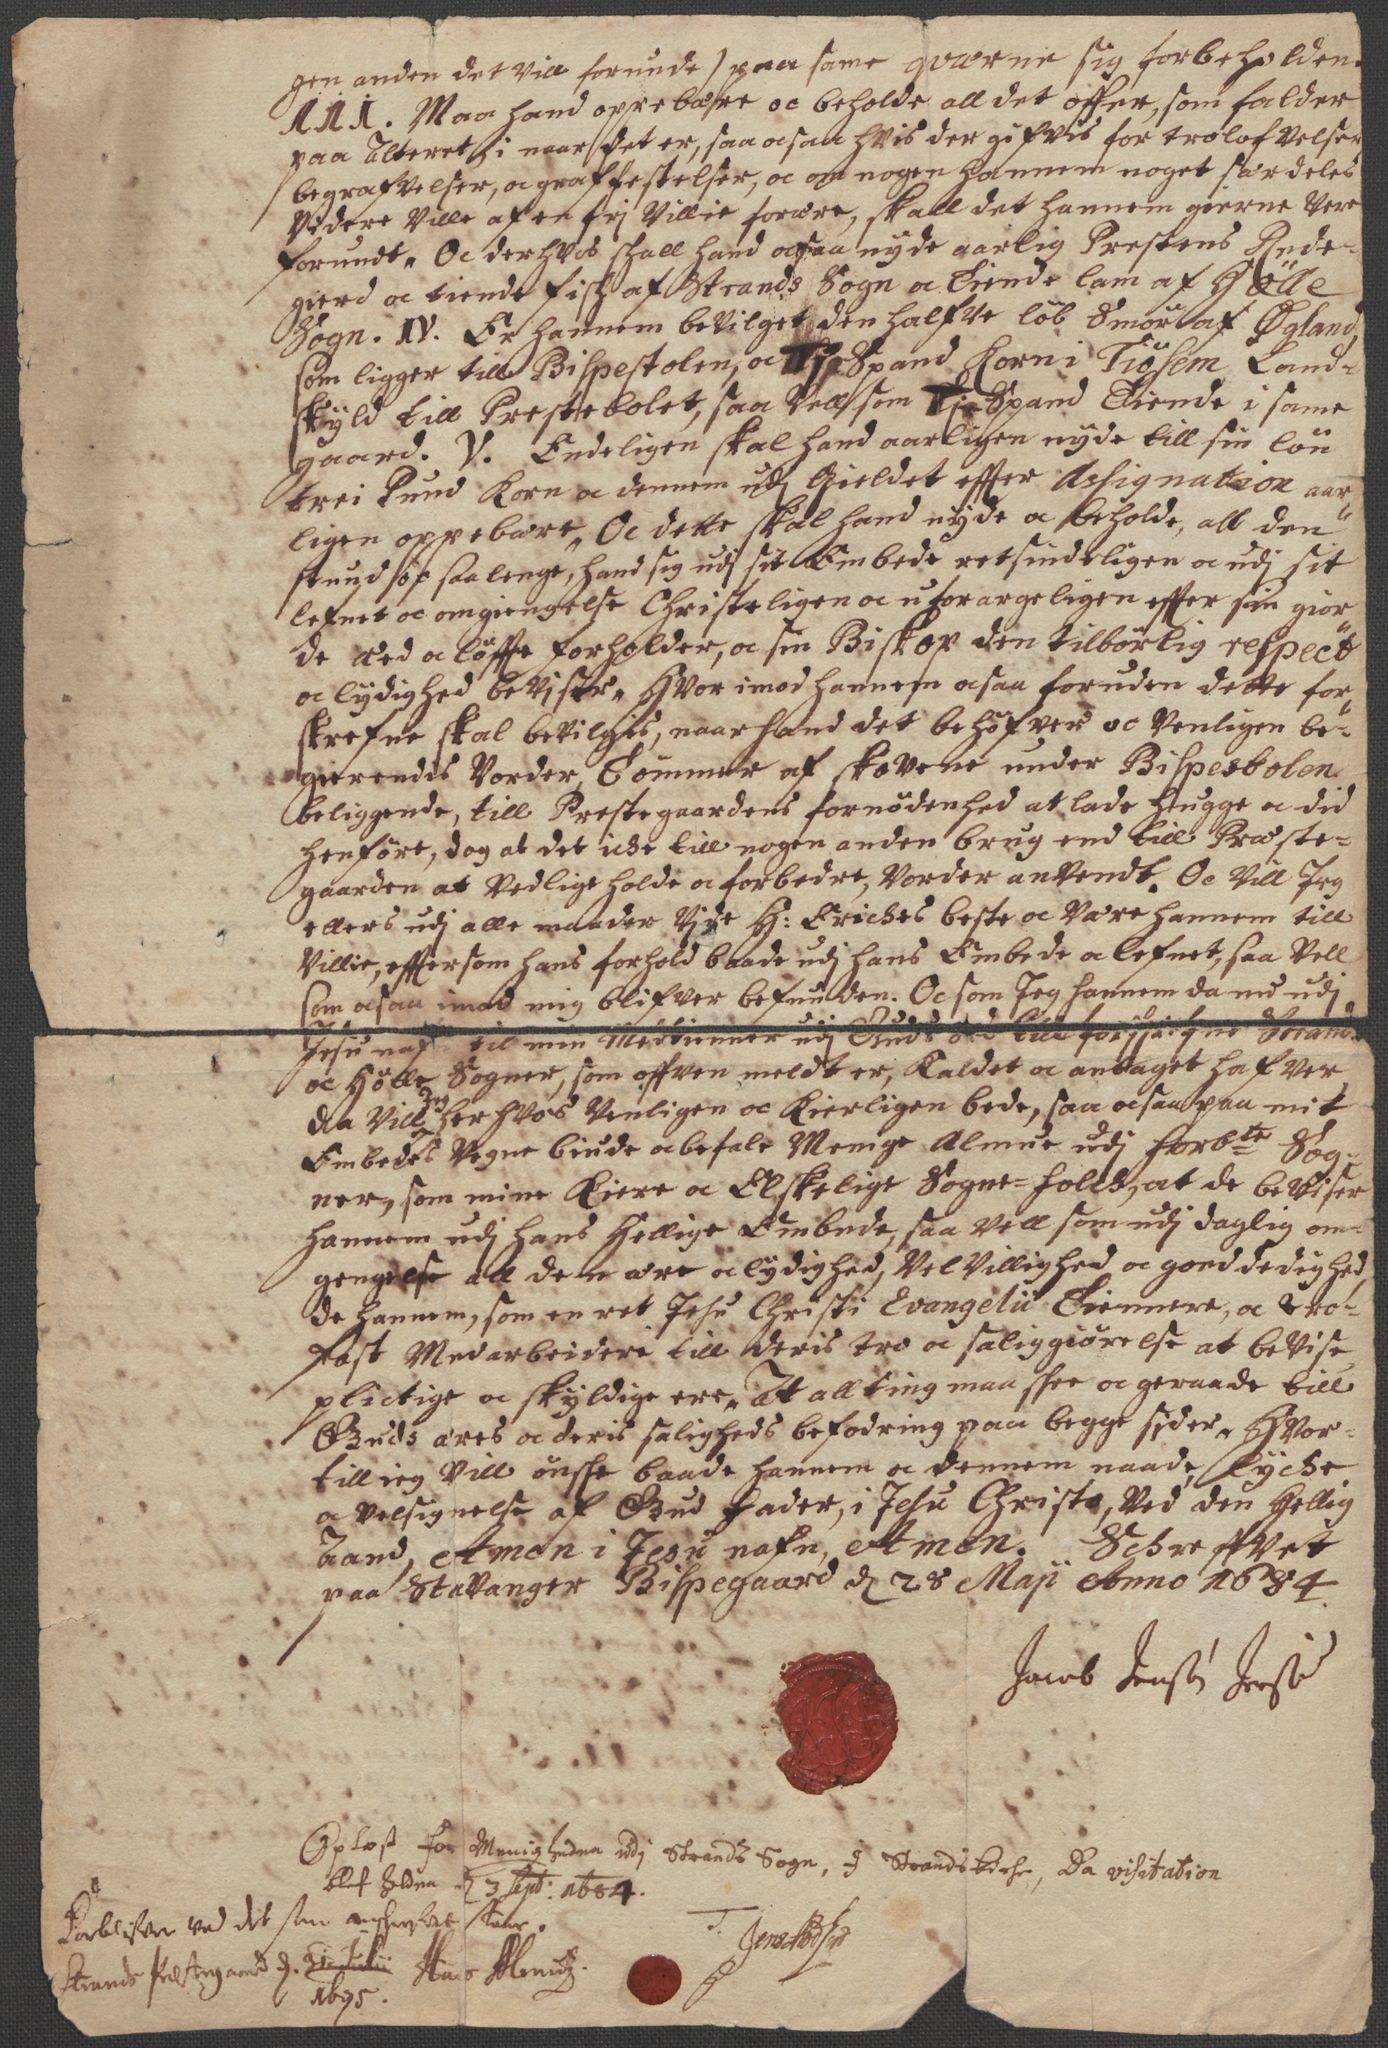 gen anden det vill forunde) paa same qværne sig forbeholden.
III. Maa hand oppebære oc beholde all det offer, som falder
paa Alteret i naar det er, saa ocsaa hvis der gifvis for trolofvelser
begrafvelser, oc graffestelser, oc om nogen hannem noget særdeles
Videre Ville af en frj Villie forære, skall det hannem gierne Vere
forundt. Oc derhvos skall hand ocsaa nyde aarlig Prestens Rede-
gierd oc tiende fisk af Strands Sogn oc Tiende lam af Hølle
Sogn. IV. Er hannem bevilget den halfve løb Smør af Øgland
som ligger till Bispestolen, oc Spand Korn i Tiøsem Land-
skyld till Prestebolet, saa Vell som Spand Tiende i same
gaard. V. Endeligen skal hand aarligen nyde till sin løn
trei Pund Korn oc dennem udj Gieldet effter Assignation aar-
ligen oppebære. Oc dette skal hand nyde oc beholde, all den
stund oc saa lenge, hand sig udj sit Embede retsindeligen oc udj sit
lefnet oc omgiengelse Christeligen oc uforargeligen effter sin gior
de æed oc løffte forholder, oc sin Biskop den tilbørlig respect
oc lydighed beviser. Hvor imod hannem ocsaa foruden dette for-
skrefne skal bevilgis, naar hand det behøfver oc Venligen be-
gierendis Vorder, Tømmer af skovene under Bispestolen
beliggende, till Prestegaardens fornødenhed at lade hugge oc did
henføre, dog at det icke till nogen anden brug end till Præste-
gaarden at Vedlige holde oc forbedre, Vorder anvendt. Oc Vill Jeg
ellers udj alle maader Vide H: Eriches beste oc Være hannem till
Villie, effter som hans forhold baade udj hans Embede oc lefnet, saa Vell
som ocsaa imod mig blifver befunden. Oc som Jeg hannem da nu udj
Jesu nafn til min Medtienner udj Guds ord till forskrefne Strand
oc Hølle Sogner, som offven meldt er, Kaldet oc antaget hafver
da Vill Jeg herhvos Venligen oc Kierligen bede, saa ocsaa paa mit
Embedes Vegne biude oc befale Menige Almue udj forbte Sog-
ner, som mine Kiere oc Elskelige Sogne-folck, at de beviser
hannem udj hans Hellige Embede, saa Vell som udj daglig om-
gengelse all den ære oc lydighed, Velvillighed oc goddedighed,
de hannem, som en ret Jesu Christi Evangelii Tiennere, oc tro-
fast Medarbeidere till deris tro oc saliggiørelse at bevise
plictige oc skyldige ere. At allting maa skee oc geraade till
Guds æres oc deris saligheds befodring paa begge sider. Hvor-
till ieg Vill ønske baade hannem oc dennem naade, lycke
oc velsignelse af Gud Fader, i Jesu Christo, Ved den Hellig
Aand, Amen i Jesu nafn, Amen. Schreffvet
paa Stavanger Bispegaard d 28 Maji Anno 1684
Jacob Jensøn
Oplæst for Menigheden udj Strands Sogn, i Strands kirche, Da visitation
blef holden d 3 Sept: 1684.
Forblifver ved det som
Strands Prestegaard d. 31 Julii
1695.